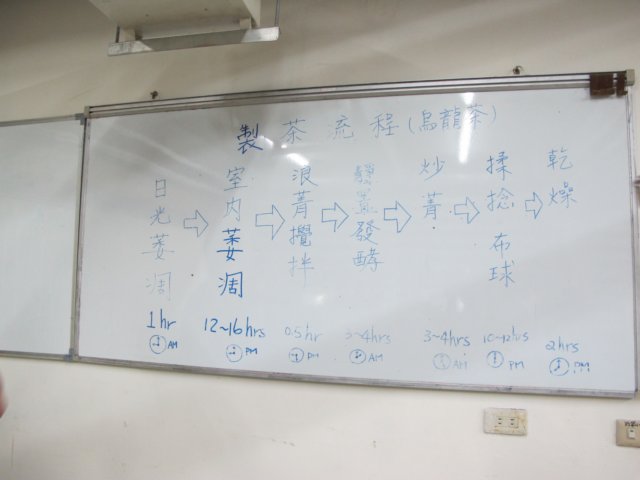 製茶流程(烏龍茶)
日光萎凋
室內萎凋
浪菁攪拌
靜置發酵
炒菁
揉捻布球
乾燥
1hr
AM
12~16hrs
PM
0.5hr
PM
3~4hrs
AM
3~4hrs
AM
10~12hrs
PM
2hrs
PM